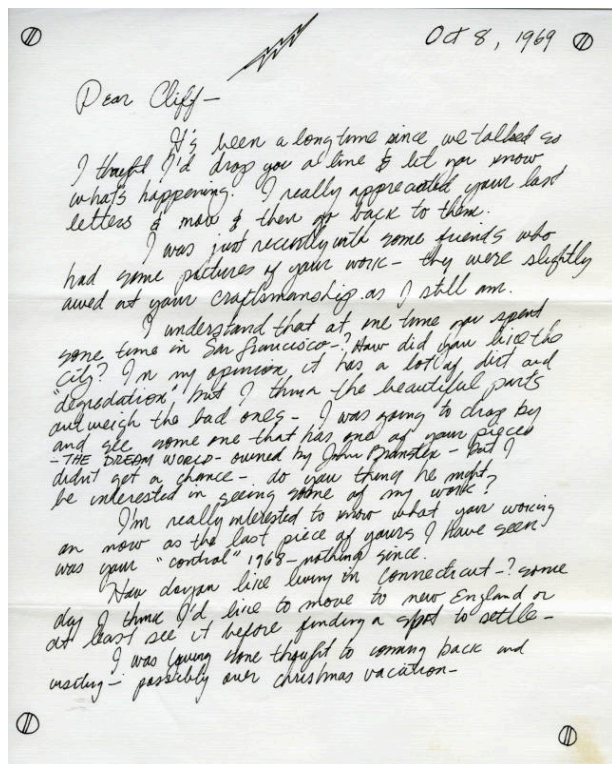 Oct 8, 1969
Dear Cliff—
It's been a long time since we talked so
I thought I'd drop you a line & let you know
what's happening. I really appreciated your last
letters & now & then go back to them.
I was just recently with some friends who
had some pictures of your work – they were slightly
awed at your craftsmanship as I still am.
I understand that at one time you spent
some time in San Francisco –? How did you like the
City? In my opinion, it has a lot of dirt and
"degredation" but I think the beautiful parts
outweigh the bad ones – I was going to drop by
and see some one that has one of your pieces
– THE DREAM WORLD – owned by John – but I
didn't get a chance – do you think he might
be interested in seeing some of my work?
I'm really interested to know what your working
on now as the last piece of yours I have seen
was your "control" 1968 – nothing since.
How do you like living in Connecticut –? Some
day I think I'd like to move to New England or
at least see it before finding a spot to settle –
I was giving some thought to coming back and
visiting – possibly over christmas vacation –